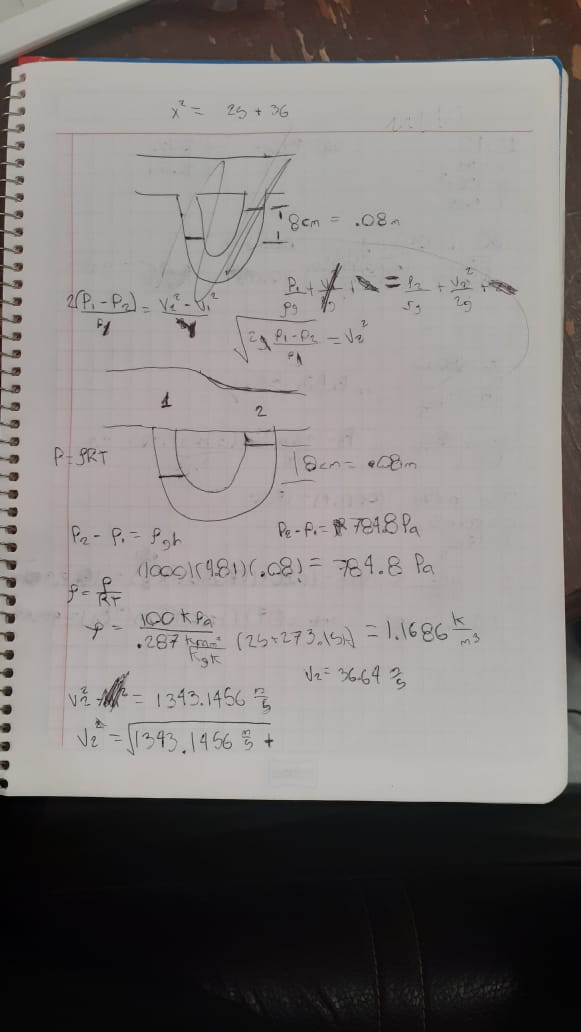 x² = 25 + 36
8cm = .08m
P₁/ρg + = P₂/ρg + V₂²/2g +
2(P₁-P₂)/ρ = V₂² - V₁²
√2 P₁-P₂/ρ = V₂²
1 2
P=ρRT
8cm = .08m
P₂ - P₁ = ρgh P₂-P₁= 784.8 Pa
(1000)(9.81)(.08) = 784.8 Pa
ρ = P/RT
ρ = 100 kPa / .287 kPa m³/kgK (25+273.15K) = 1.1686 k/m³
V₂ = 36.64 m/s
V₂² = 1343.1456 m/s
V₂² = √1343.1456 m/s +